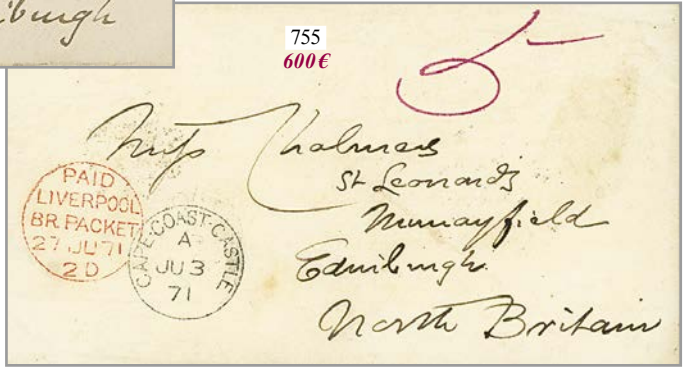 iburgh
755
600€
5
Miss Chalmers
St Leonards
Murrayfield
Edinburgh
North Britain
PAID
LIVERPOOL
BR.PACKET
27 JU 71
2D
CAPE-COAST-CASTLE
A
JU 3
71